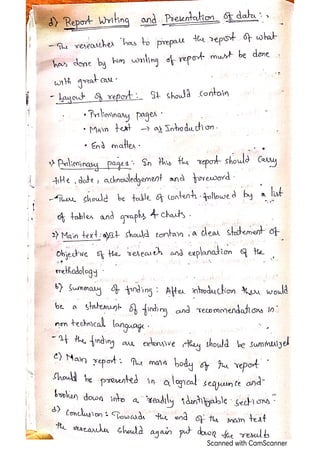 d) Report Writing and Presentation of data :,
- The researcher has to prepare the report of what
has done by him writing of report must be done
with great care.
- Layout of report: It should contain
• Preliminary pages.
• Main text → a) Introduction.
• End matter.
1) Preliminary pages: In this the report should carry
title, date, acknowledgement and foreword.
- There should be table of contents followed by a list
of tables and graphs & charts.
2) Main text: a) It should contain a clear statement of
objective of the research and explanation of the
methodology.
b) Summary of finding: After introduction there would
be a statement of finding and recommendations in
non technical language.
- If the finding are extensive they should be summarized
c) Main report: The main body of the report
should be presented in a logical sequence and
broken down into a readily identifiable sections.
d) Conclusion: Towards the end of the main text
the researcher should again put down the results
Scanned with CamScanner